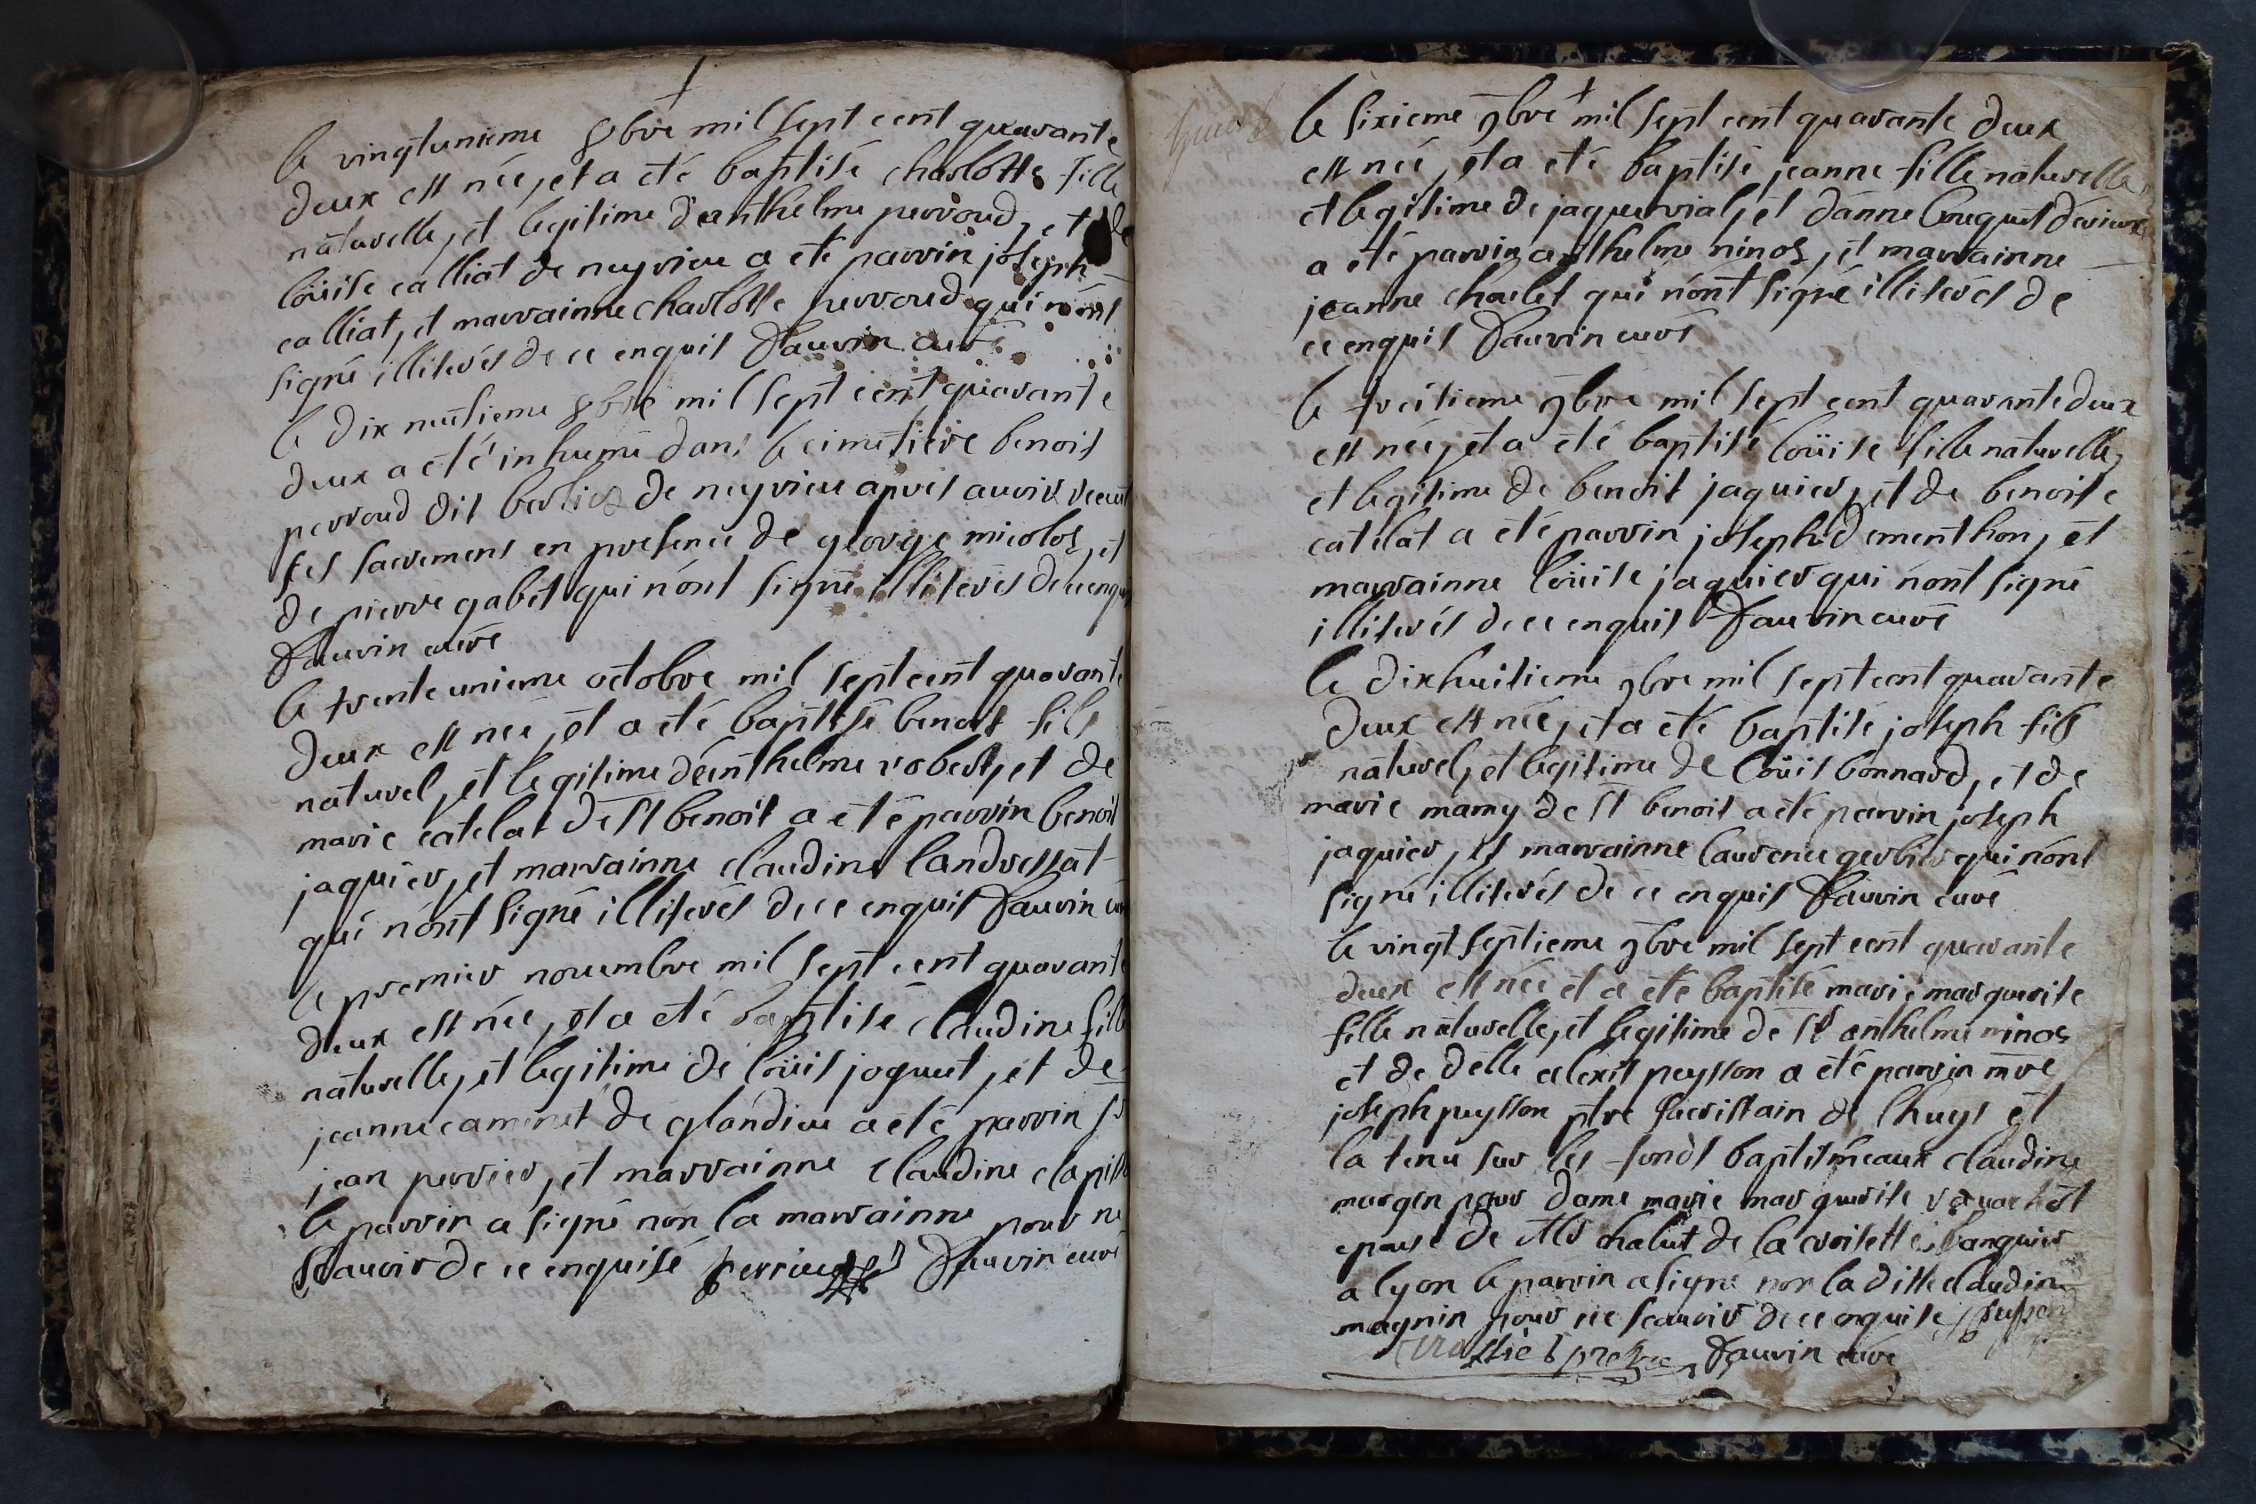 le vingtunieme 8bre mil sept cent quarante
deux est née, et a eté baptisé charlotte fille
naturelle, et legitime d'anthelme perroud, et de
loüise calliat de neyrieu a eté parrin joseph
calliat, et marrainne charlotte perroud qui n'ont
signé illiterés de ce enquis Dauvin curé
le dix neufieme 8bre mil sept cent quarante
deux a eté inhumé dans le cimetiere benoit
perroud dit berlioz de neyrieu apres auoir receut
ses sacremens en presence de george micoloz, et
de pierre gabet qui n'ont signé illiterés de ce enquis
Dauvin curé
le trente unieme octobre mil sept cent quarante
deux est née, et a eté baptisé benoit fils
naturel, et legitime d'anthelme robert, et de
marie catelat de st benoit a eté parrin benoit
jaquier, et marrainne claudine landressat
qui n'ont signé illiterés de ce enquis Dauvin curé
le premier nouembre mil sept cent quarante
deux est née, et a eté baptisé claudine fille
naturelle, et legitime de loüis joquet, et de
jeanne caminet de glandieu a eté parrin sr
jean perrier, et marrainne claudine clapisson
le parrin a signé non la marrainne pour ne
scauoir de ce enquise perrier Dauvin curé
le sixieme 9bre mil sept cent quarante deux
est née, et a eté baptisé jeanne fille naturelle,
et legitime de jaque vial, et d'anne bouquet d'erieux
a eté parrin anthelme ninoz, et marrainne
jeanne charlet qui n'ont signé illiterés de
ce enquis Dauvin curé
le treisieme 9bre mil sept cent quarante deux
est née, et a eté baptisé loüise fille naturelle,
et legitime de benoit jaquier, et de benoite
catelat a eté parrin joseph dementhon, et
marrainne loüise jaquier qui n'ont signé
illiterés de ce enquis Dauvin curé
le dixhuitieme 9bre mil sept cent quarante
deux est née, et a eté baptisé joseph fils
naturel, et legitime de loüis bonnard, et de
marie mamy de st benoit a eté parrin joseph
jaquier, et marrainne laurence gerbier qui n'ont
signé illiterés de ce enquis Dauvin curé
le vingt septieme 9bre mil sept cent quarante
deux est née et a eté baptisé marie marguerite
fille naturelle, et legitime de sr anthelme ninoz
et de delle alexis peysson a eté parrin mre
joseph peysson ptre sacristain de lhuys et
la tenu sur les fonds baptismeaux claudine
margnin pour dame marie marguerite
epouse de Mr chalut de la croisette banquier
a lyon le parrin a signé non la ditte claudine
magnin pour ne scauoir de ce enquise peysson
prestre Dauvin curé